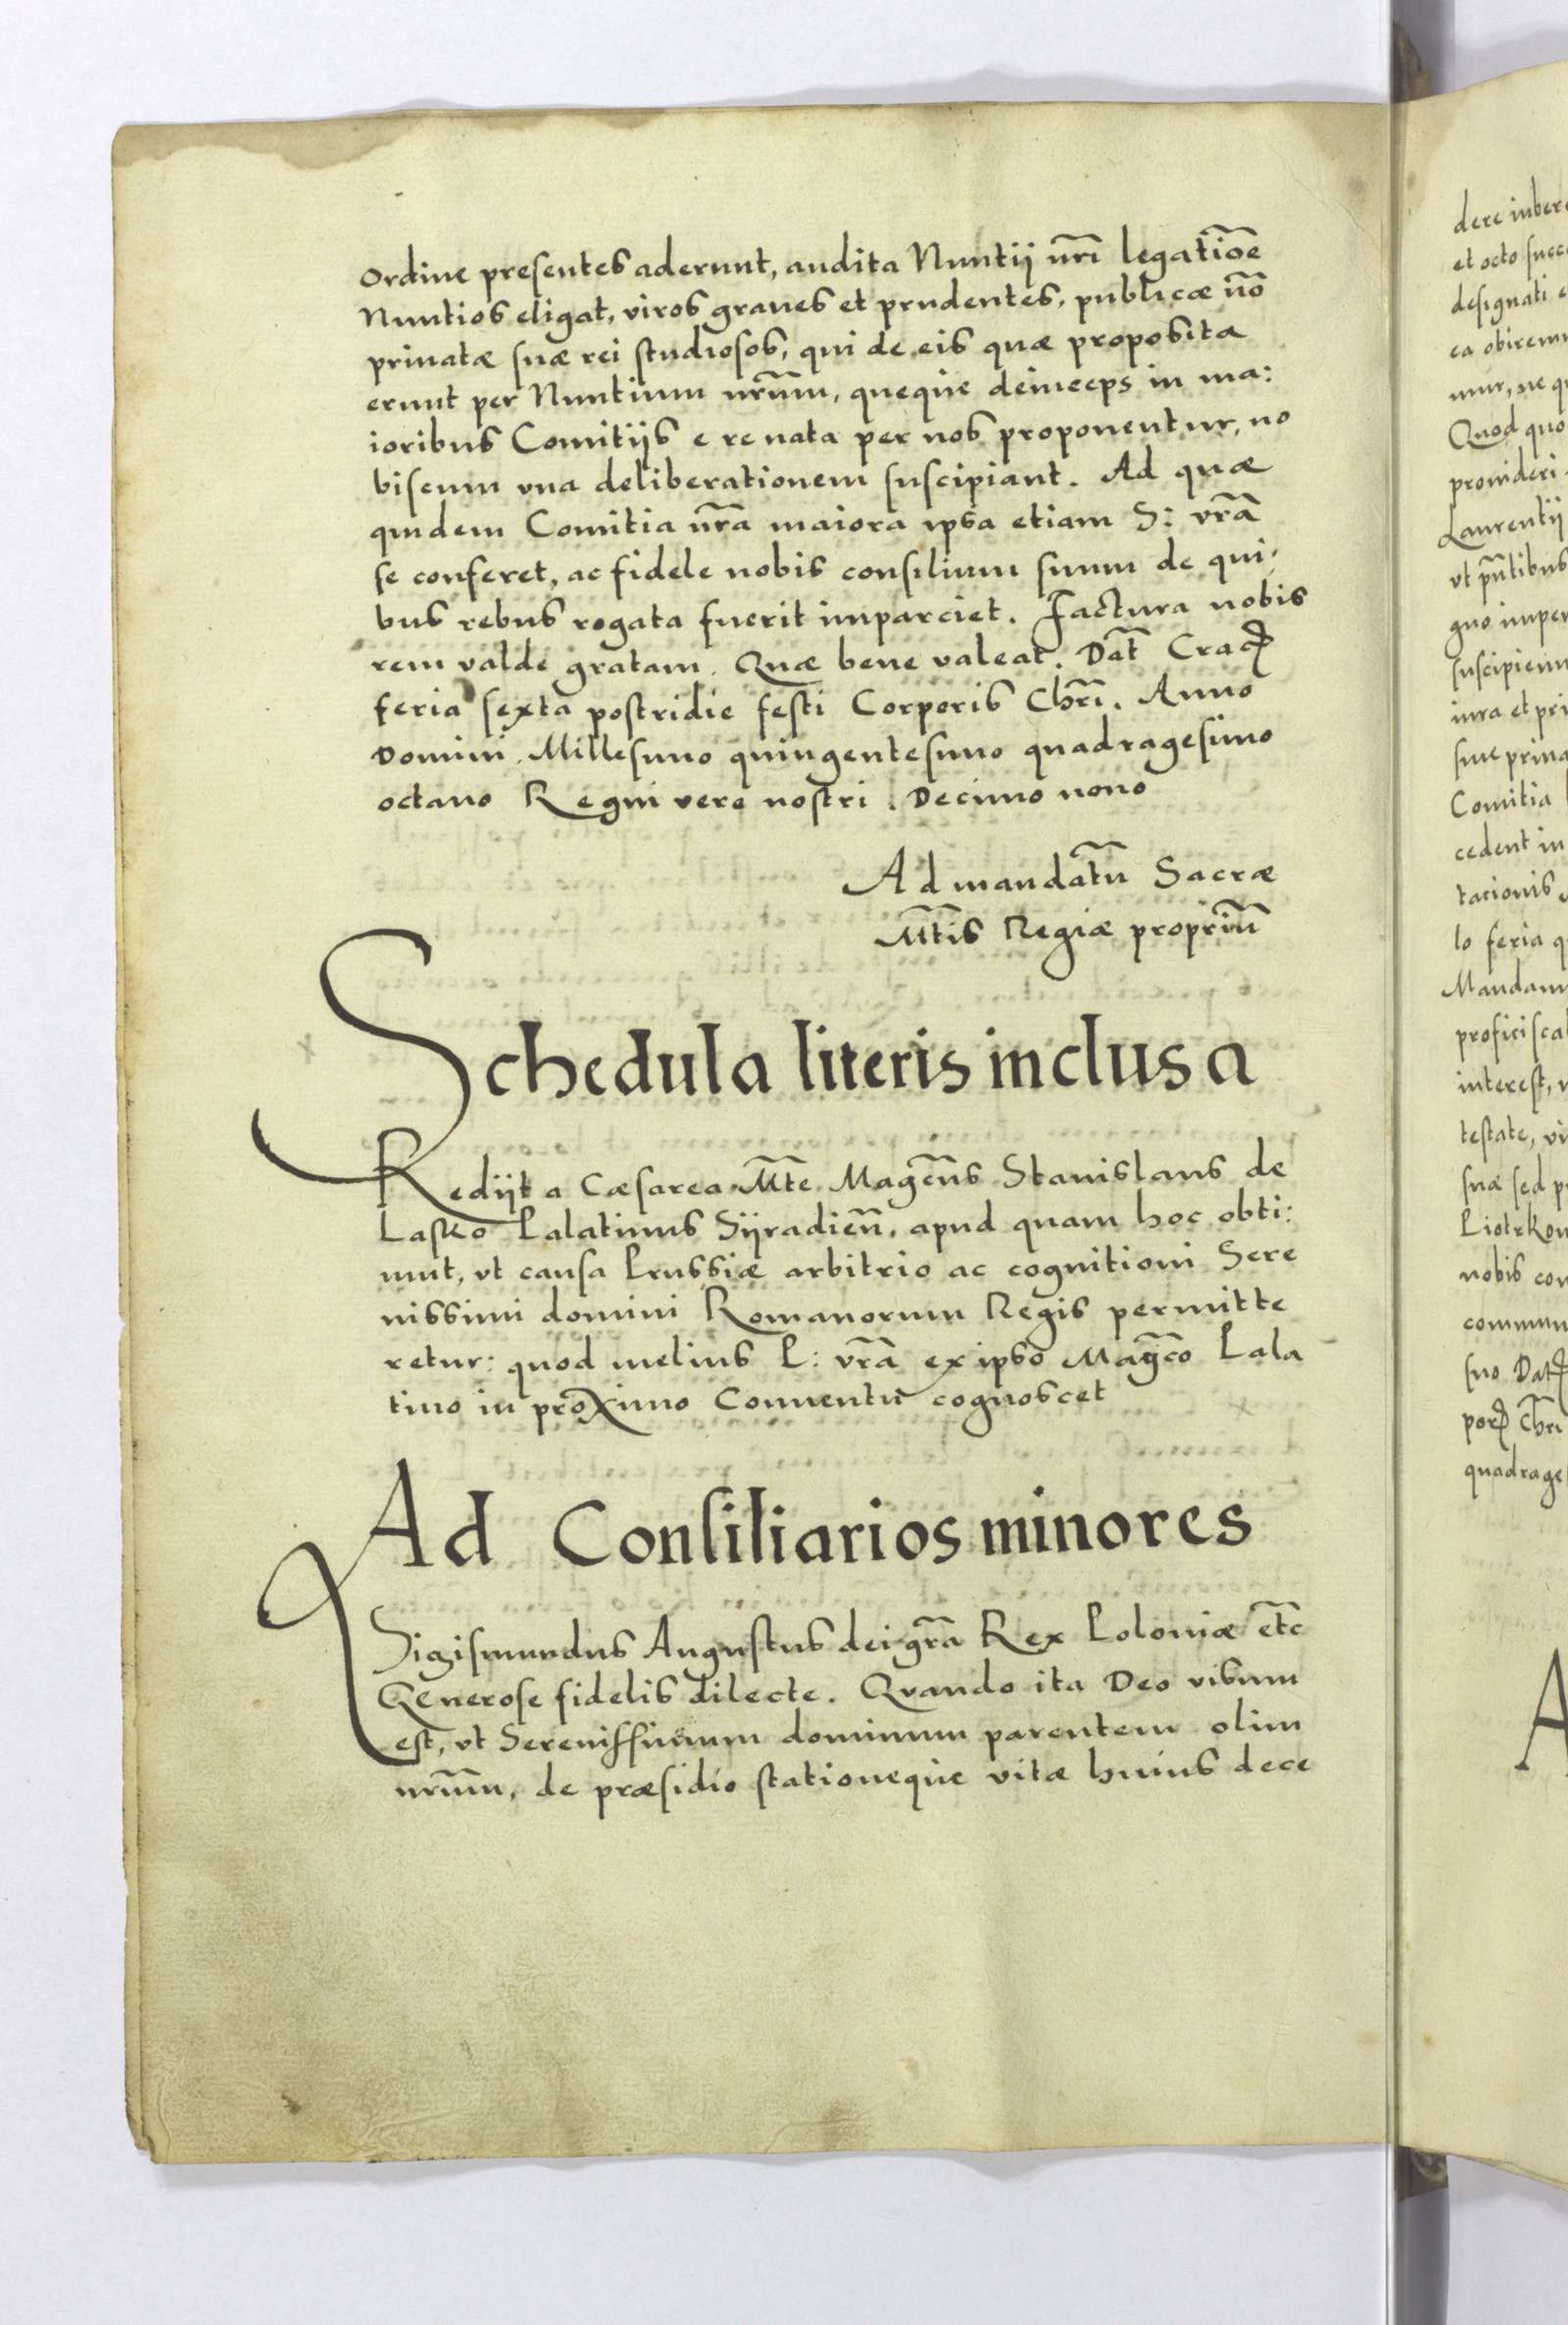 ordine presentes aderunt, audita Nuntij nr̃i legatiõe
Nuntios eligat, viros graues et prudentes, publicæ nõ
priuatæ suæ rei studiosos, qui de eis quæ proposita
erunt per Nuntium nr̃um, queque deinceps in ma:
ioribus Comitijs e re nata per nos proponentur, no
biscum vna deliberationem suscipiant. Ad quæ
quidem Comitia nr̃a maiora ipsa etiam S: vr̃a
se conferet, ac fidele nobis consilium suum de qui,
bus rebus rogata fuerit imparciet. Factura nobis
rem valde gratam. Quæ bene valeat. Dat̃ Crac̃
feria sexta postridie festi Corporis Chr̃i. Anno
Domini. Millesimo quingentesimo quadragesimo
octauo Regni vero nostri. Decimo nono
Ad mandatũ Sacræ
Mt̃is Regiæ propriũ
Schedula literis inclusa
Redijt a Cæsarea Mt̃e Magc̃us Stanislaus de
Lasko Palatinus Sijradieñ, apud quam hoc obti:
nuit, vt causa Prussiæ arbitrio ac cognitioni Sere
nissimi domini Romanorum Regis permitte
retur: quod melius P: vr̃a ex ipso Magc̃o Pala
tino in proximo Conuentu cognoscet
Ad Consiliarios minores
Sigismundus Augustus dei gr̃a Rex Poloniæ et̃c
GEnerose fidelis dilecte. Quando ita Deo visum
est, vt Serenissimum dominum parentem olim
nr̃um, de præsidio stationeque vitæ huius dece
dere iubere
et octo succe
designati e
ea obiremu
mur, ne q
Quod quo
prouideri
Laurentij
vt pñtibus
gno imper
suscipiem
iura et pri
siue priua
Comitia
cedent in
tacionis
lo feria q
Mandam
proficisca
interest, v
testate, vi
suæ sed p
Piotrkou
nobis con
commun
suo Dat̃
por̃ Chr̃i
quadrage
A